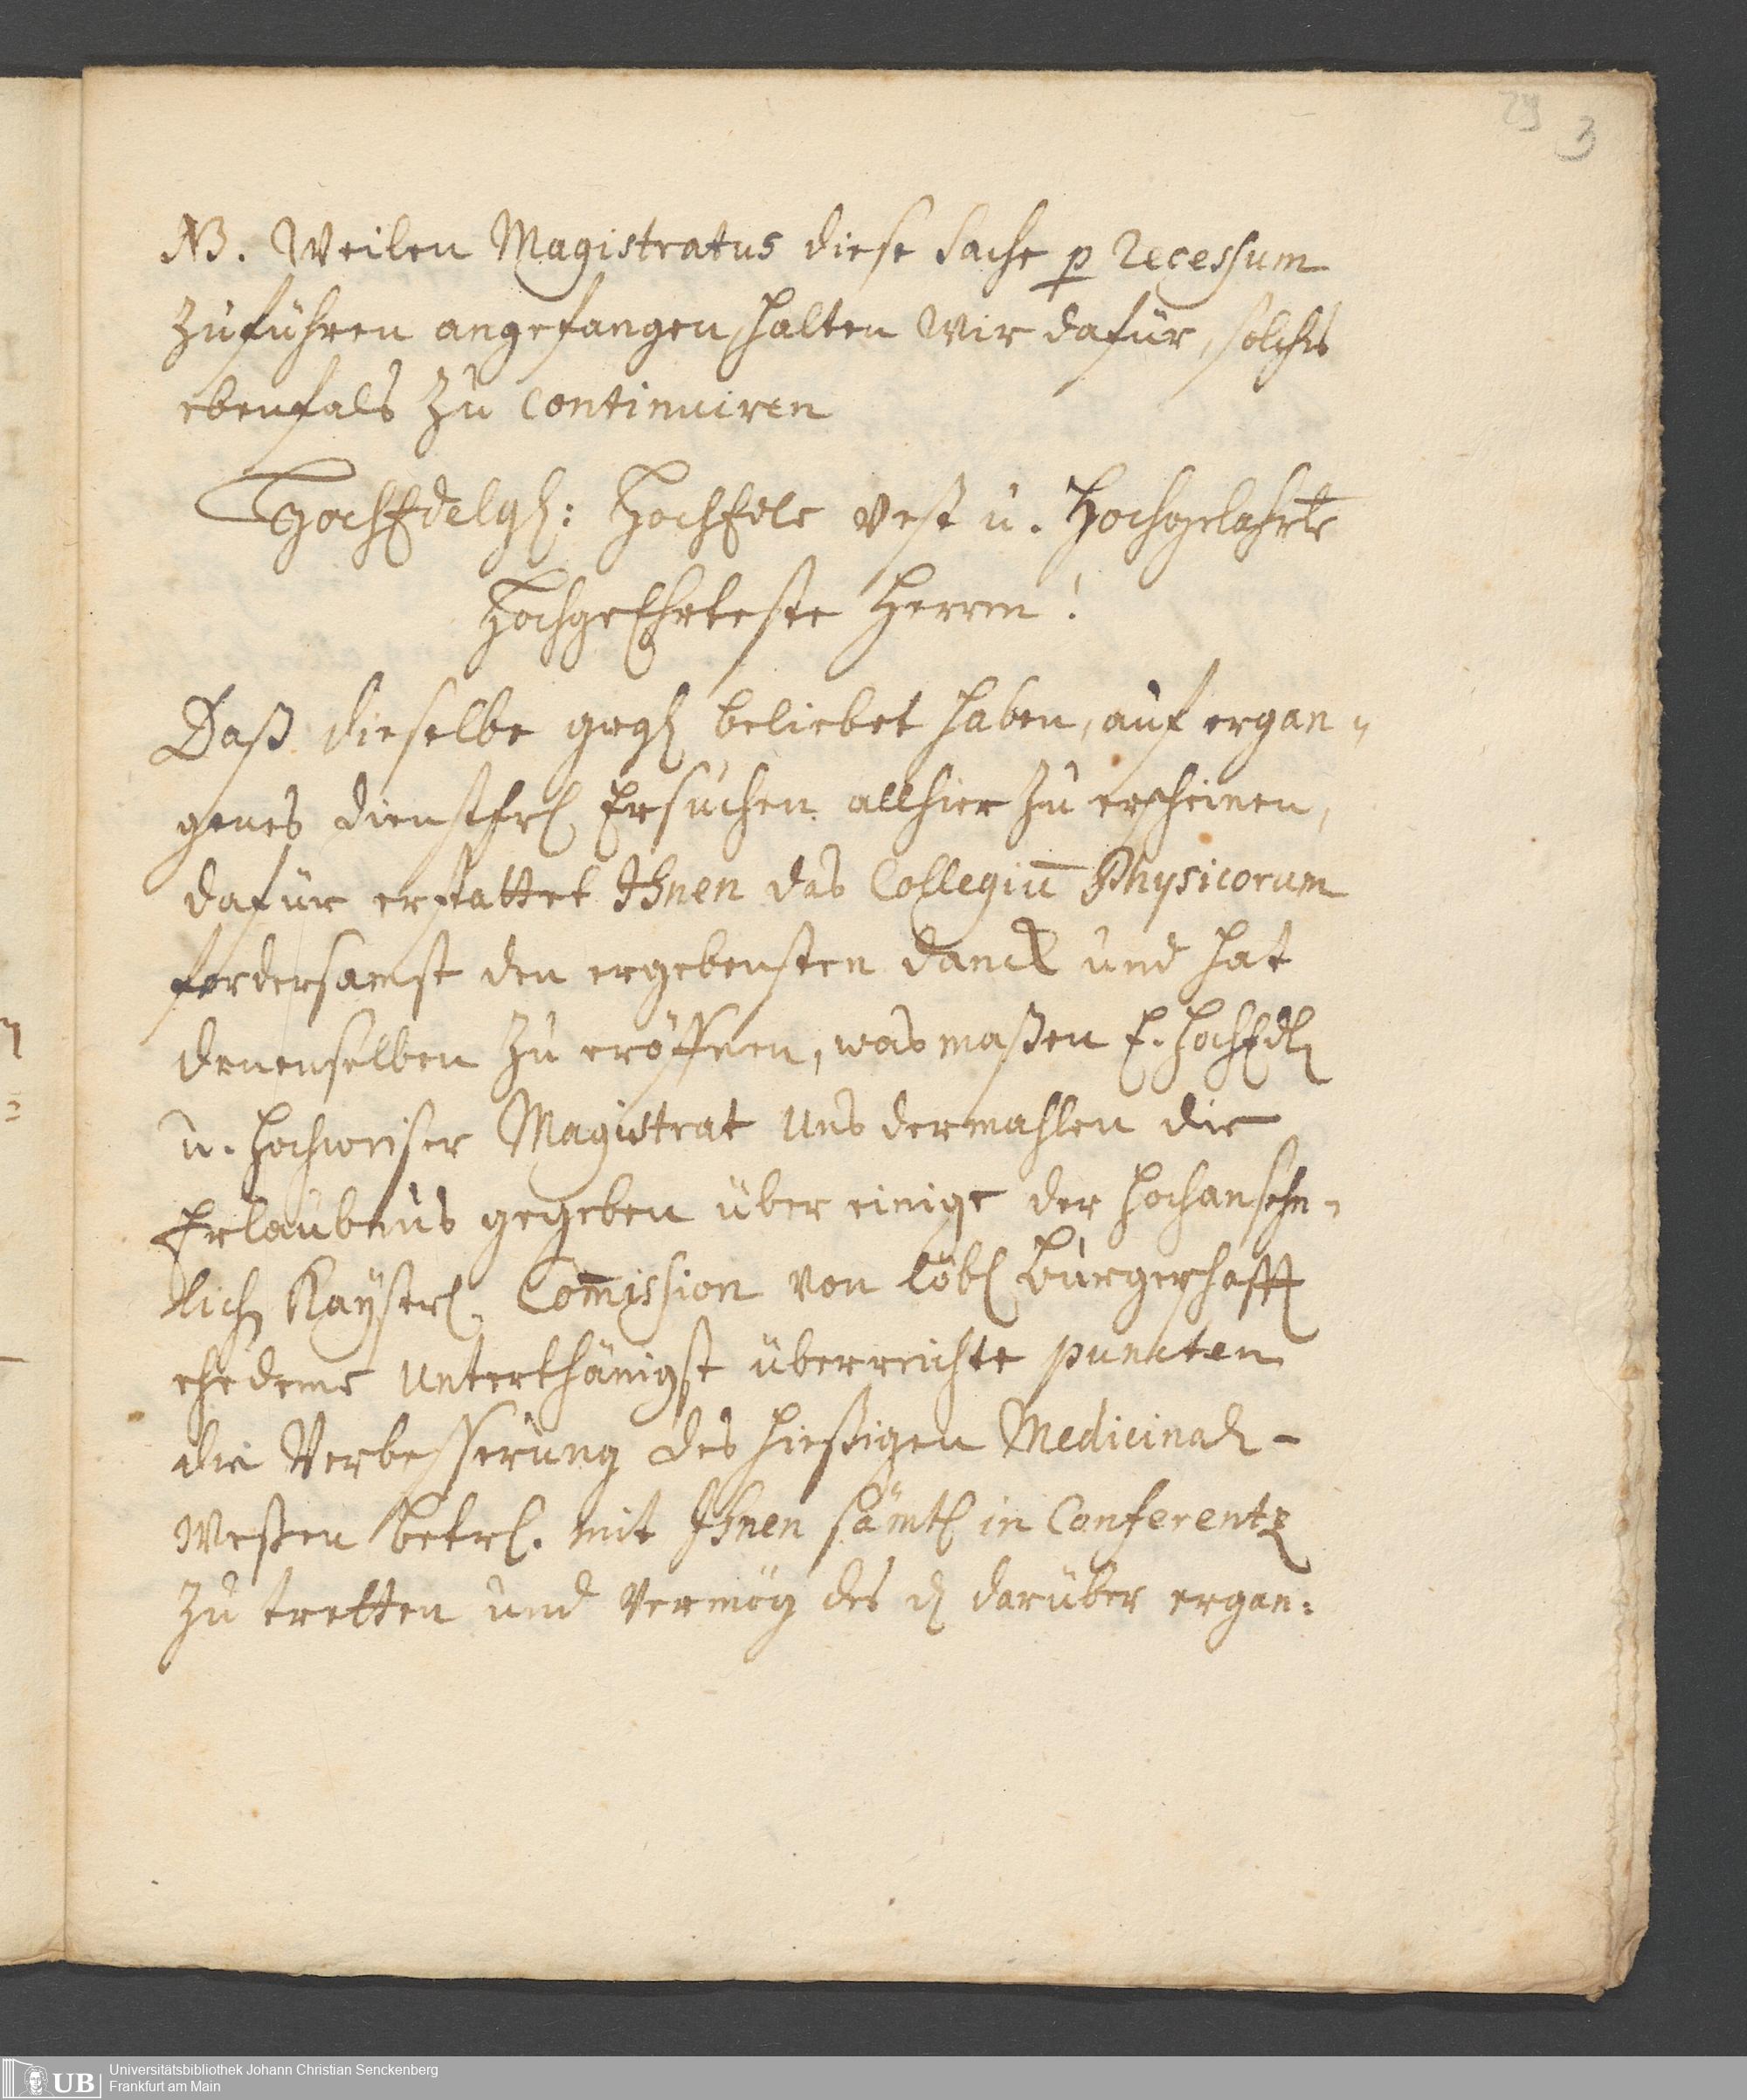 29 3
NB. Weilen Magistratus diese Sache p Recessum
zuführen angefangen, halten Wir dafür, solches
ebenfals zu continuiren
HochEdelgb: HochEdle Vest u. Hochgelahrte
HochgeEhrteste Herren!
Daß dieselbe beliebet haben, auf ergan„
genes dienstfrl Ersuchen allhier zu erscheinen,
dafür erstattet Ihnen das Collegiū Physicorum
fordersamst den ergebensten danck und hat
denenselben zu eröffnen, was maßen E. HochEdl
u. Hochweiser Magistrat Uns dermahlen die
Erlaubnus gegeben über einige der Hochansehn-
lich Kaÿserl. Com̄ission von löbl Burgerschafft
ehedeme Unterthänigst überreichte puncten
die Verbesserung des hießigen Medicinal-
Weßen betrl. mit Ihnen sämtl in Conferentz
zu tretten und Vermög des darüber ergan:
UB
Universitätsbibliothek Johann Christian Senckenberg
Frankfurt am Main